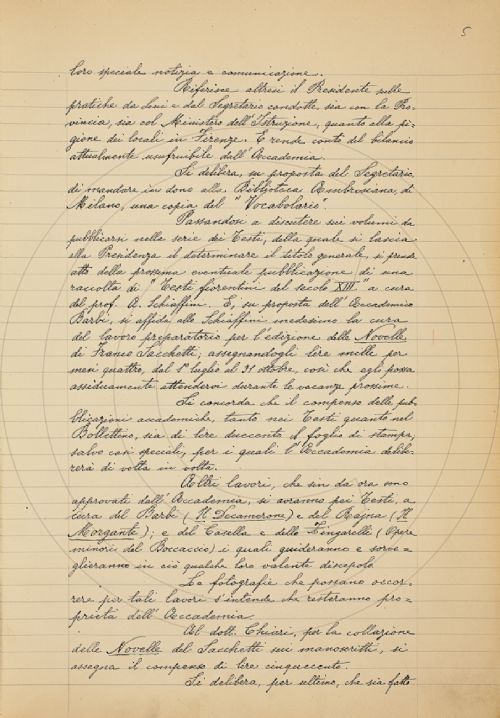 5
loro speciale notizia e comunicazione.
Riferisce altresì il Presidente sulle
pratiche da lui e dal Segretario condotte, sia con la Pro-
vincia, sia col Ministero dell'Istruzione, quanto alla pi-
gione dei locali in Firenze. E rende conto del bilancio
attualmente usufruibile dall'Accademia.
Si delibera, su proposta del Segretario,
di mandare in dono alla Biblioteca Ambrosiana, di
Milano, una copia del "Vocabolario".
Passandosi a discutere sui volumi da
pubblicarsi nella serie dei Testi, della quale si lascia
alla Presidenza il determinare il titolo generale, si prende
atto della prossima eventuale pubblicazione di una
raccolta di "Testi fiorentini del secolo XIII" a cura
del prof. A. Schiaffini. E, su proposta dell'Accademico
Barbi, si affida allo Schiaffini medesimo la cura
del lavoro preparatorio per l'edizione delle Novelle
di Franco Sacchetti, assegnandogli lire mille per
mesi quattro, dal 1º luglio al 31 ottobre, così che egli possa
assiduamente attendervi durante le vacanze prossime.
Si concorda che il compenso delle pub-
blicazioni accademiche, tanto nei Testi quanto nel
Bollettino, sia di lire duecento il foglio di stampa,
salvo casi speciali, per i quali l'Accademia delibe-
rerà di volta in volta.
Altri lavori, che sin da ora sono
approvati dall'Accademia, si avranno pei Testi, a
cura del Barbi (Il Decamerone) e del Rajna (Il
Morgante); e del Casella e dello Zingarelli (Opere
minori del Boccaccio) i quali guideranno e sorve-
glieranno in ciò qualche loro valente discepolo.
Le fotografie che possano occor-
rere per tali lavori s'intende che resteranno pro-
prietà dell'Accademia.
Al dott. Chiari, per la collazione
delle Novelle del Sacchetti sui manoscritti, si
assegna il compenso di lire cinquecento.
Si delibera, per ultimo, che sia fatto